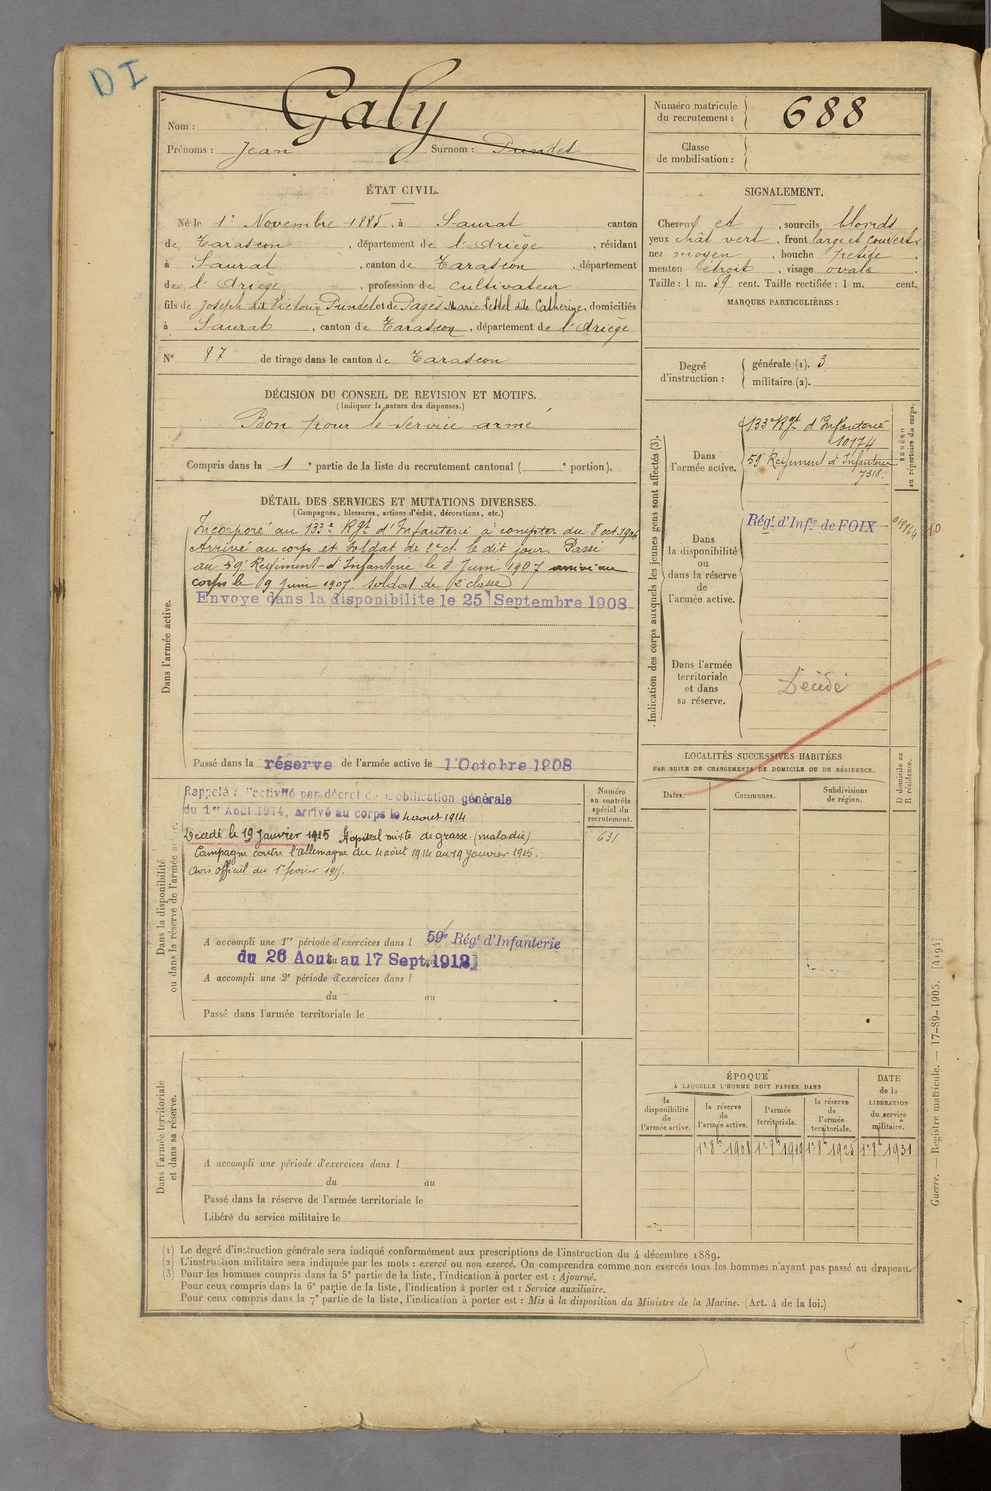 DI
Nom : Galy
Prénoms : Jean Surnom : Pundet
Numéro matricule du recrutement : 688
Classe de mobilisation :
ÉTAT CIVIL.
Né le 1er Novembre 1885, à Saurat canton
de Tarascon, département de l'Ariège, résidant
à Saurat, canton de Tarascon, département
de l'Ariège, profession de cultivateur
fils de Joseph dit Victorin Pundet et de Pagès Marie dite Catherine, domiciliés
à Saurat, canton de Tarascon, département de l'Ariège
N° 87 de tirage dans le canton de Tarascon
SIGNALEMENT.
Cheveux et, sourcils blonds
yeux chât vert, front large et couvert
nez moyen, bouche petite,
menton étroit, visage ovale
Taille : 1 m. 59 cent. Taille rectifiée : 1 m. cent.
MARQUES PARTICULIÈRES :
Degré d'instruction :
générale (1). 3
militaire (2).
DÉCISION DU CONSEIL DE REVISION ET MOTIFS.
(Indiquer la nature des dispenses.)
Bon pour le service armé
Compris dans la 1e partie de la liste du recrutement cantonal ( e portion).
DÉTAIL DES SERVICES ET MUTATIONS DIVERSES.
(Campagnes, blessures, actions d'éclat, décorations, etc.)
Dans l'armée active.
Incorporé au 133e Rgt d'Infanterie à compter du 8 oct. 1906
Arrivé au corps et soldat de 2e cl. le dit jour. Passé
au 59e Régiment d'Infanterie le 8 Juin 1907 arrivé au
corps le 9 Juin 1907. Soldat de 2e classe
Envoyé dans la disponibilité le 25 Septembre 1908
Passé dans la réserve de l'armée active le 1er Octobre 1908
Indication des corps auxquels les jeunes gens sont affectés (3).
NUMÉRO au répertoire du corps.
Dans l'armée active.
133e Rgt d'Infanterie
10174
59e Régiment d'Infanterie
7318.
Dans la disponibilité ou dans la réserve de l'armée active.
Régt d'Infie de FOIX
Dans l'armée territoriale et dans sa réserve.
Décédé
LOCALITÉS SUCCESSIVES HABITÉES
PAR SUITE DE CHANGEMENTS DE DOMICILE OU DE RÉSIDENCE.
Dates. Communes. Subdivisions de région. D domicile ou R résidence.
Dans la disponibilité ou dans la réserve de l'armée active.
Rappelé à l'activité par décret de mobilisation générale
du 1er Aout 1914, arrivé au corps le 4 aout 1914
Décédé le 19 Janvier 1915 Hopital mixte de grasse (maladie)
Campagne contre l'allemagne du 4 aout 1914 au 19 Janvier 1915.
Avis officiel du 1er fevrier 1915.
Numéro au contrôle spécial du recrutement.
631
A accompli une 1re période d'exercices dans l 59e Régt d'Infanterie
du 26 Aout au 17 Sept. 1912
A accompli une 2e période d'exercices dans l
du au
Passé dans l'armée territoriale le
Dans l'armée territoriale et dans sa réserve.
A accompli une période d'exercices dans l
du au
Passé dans la réserve de l'armée territoriale le
Libéré du service militaire le
ÉPOQUE
À LAQUELLE L'HOMME DOIT PASSER DANS
la disponibilité de l'armée active. la réserve de l'armée active. l'armée territoriale. la réserve de l'armée territoriale. DATE de la LIBÉRATION du service militaire.
1er 8bre 1908 1er 8bre 1919 1er 8bre 1925 1er 8bre 1931
(1) Le degré d'instruction générale sera indiqué conformément aux prescriptions de l'instruction du 4 décembre 1889.
(2) L'instruction militaire sera indiquée par les mots : exercé ou non exercé. On comprendra comme non exercés tous les hommes n'ayant pas passé au drapeau.
(3) Pour les hommes compris dans la 5e partie de la liste, l'indication à porter est : Ajourné.
Pour ceux compris dans la 6e partie de la liste, l'indication à porter est : Service auxiliaire.
Pour ceux compris dans la 7e partie de la liste, l'indication à porter est : Mis à la disposition du Ministre de la Marine. (Art. 4 de la loi.)
Guerre. — Registre matricule. — 17-89-1905. [4194]